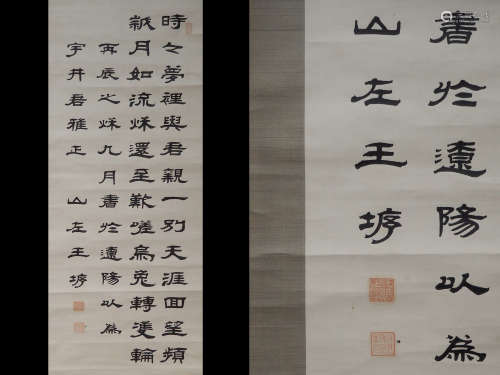 時々夢裡與君親一別天涯回望頻
歲月如流秌還至歎嗟烏兔轉雙輪
丙辰之秌九月書於遼陽以為
宇井君雅正 山左王垿
書於遼陽以為
山左王垿